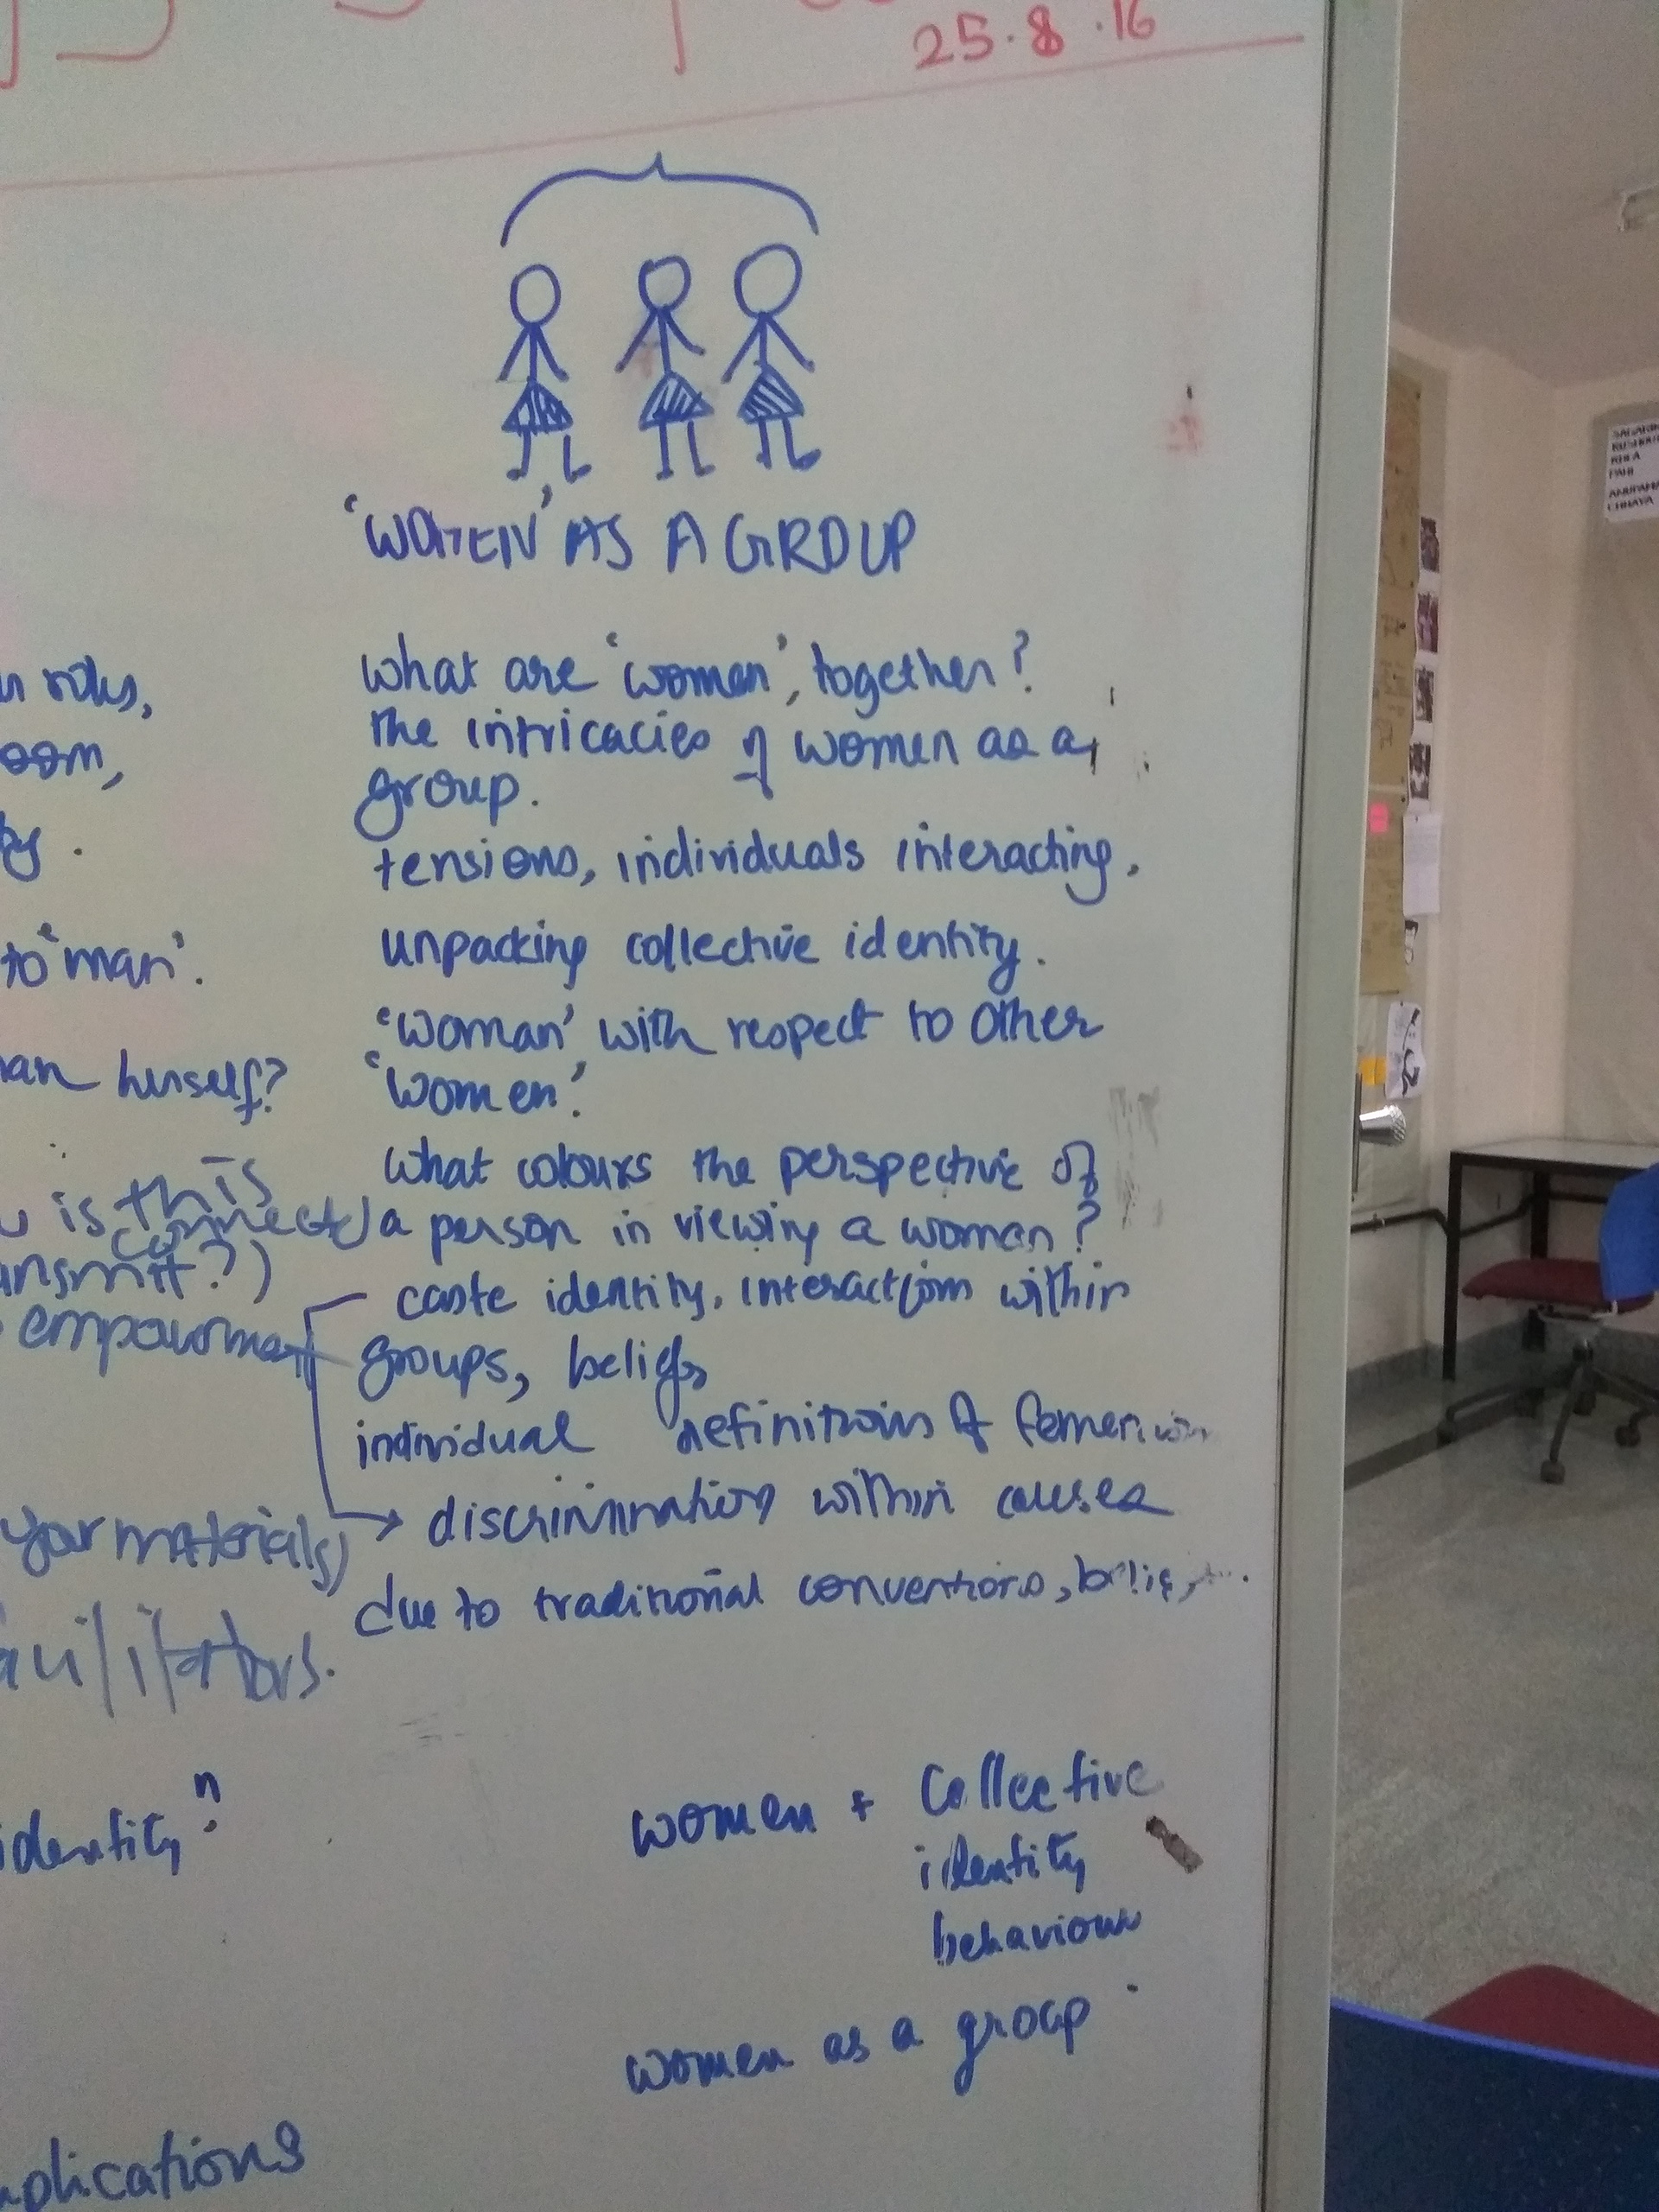 25.8.16
'WOMEN' AS A GROUP
what are 'women', together?
the intricacies of women as a
group.
tensions, individuals interacting,
unpacking collective identity.
'woman' with respect to other
'women'.
what colours the perspective of
a person in viewing a woman?
caste identity, interaction within
groups, beliefs
individual definitions of
discrimination within causes
due to traditional conventions,
women + collective
identity
behaviour
women as a group
roles,
to 'man'.
herself?
is this
connected
empowerment
your materials)
identity"?
ANUPAMA
CHHAYA